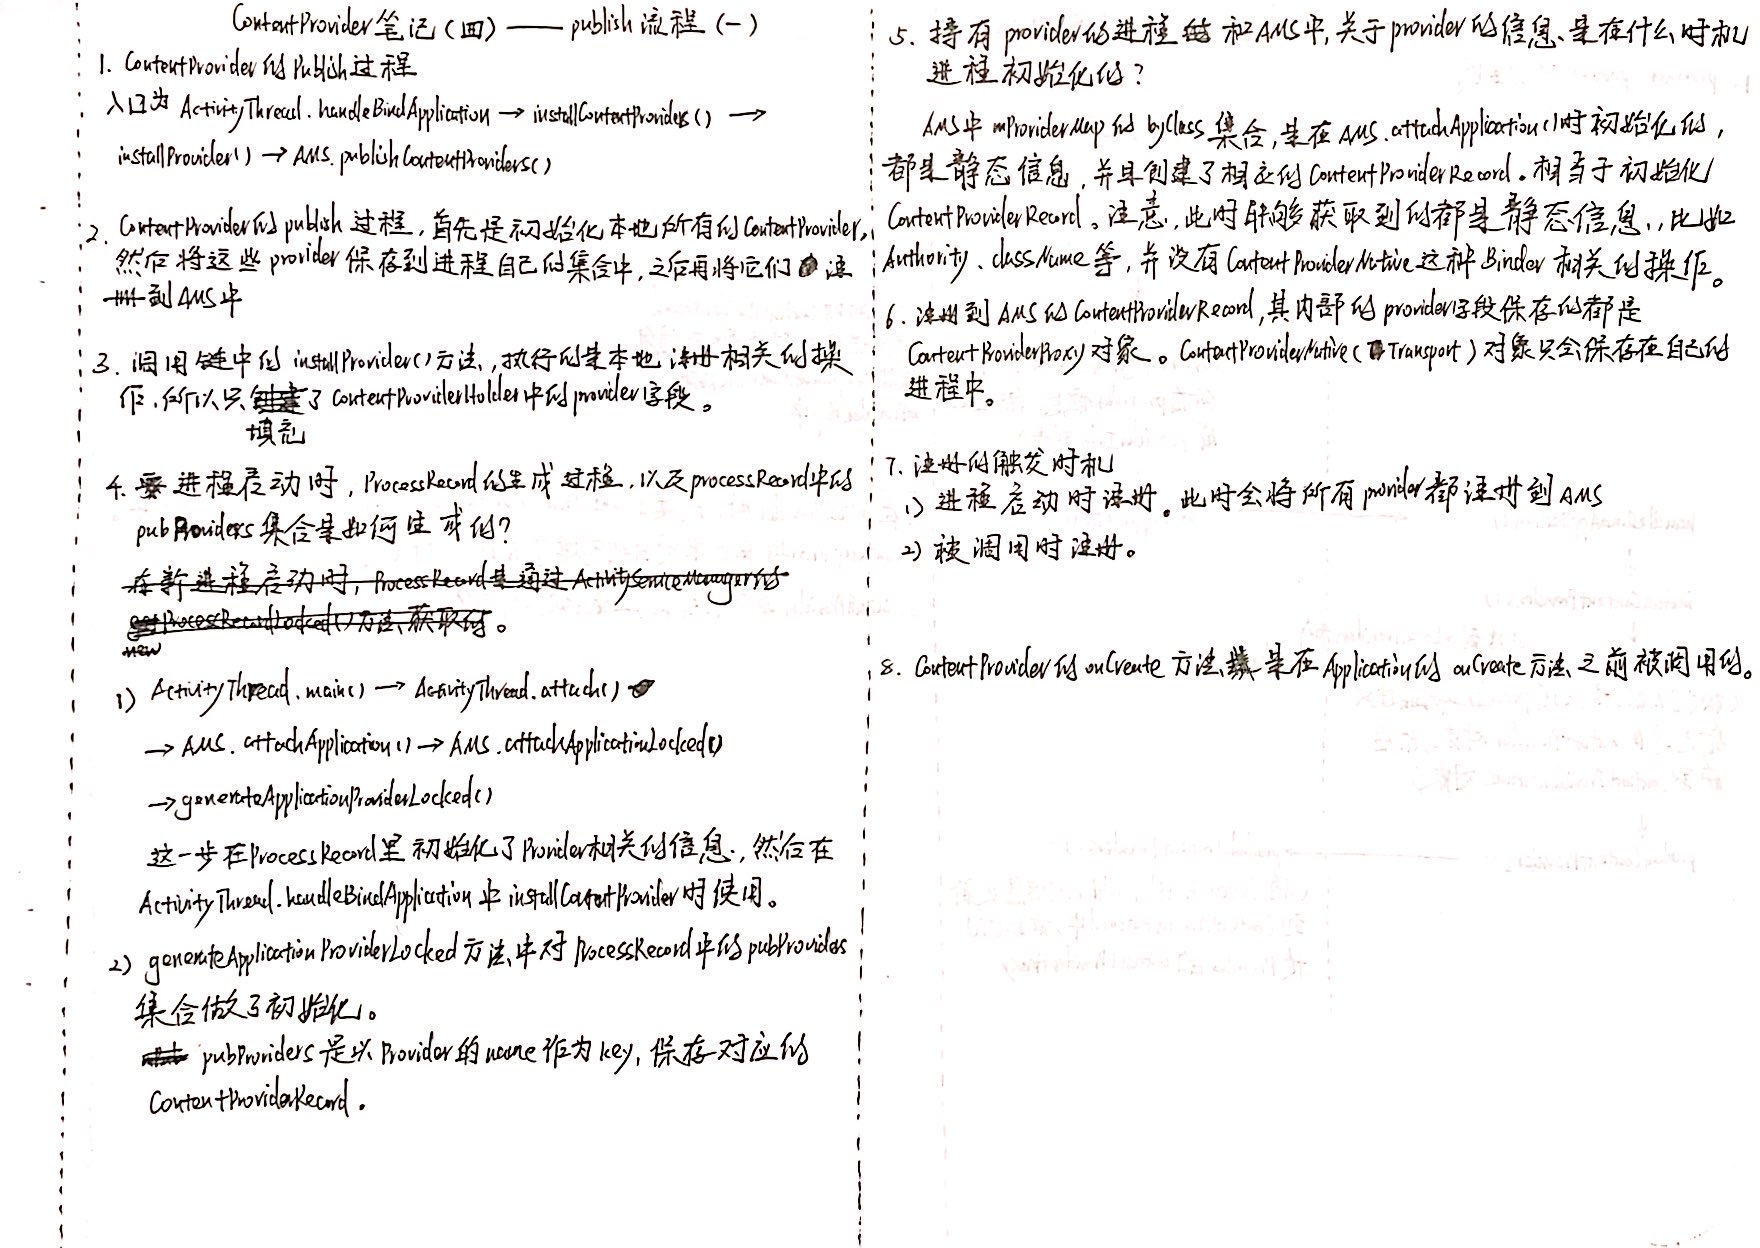 ContentProvider笔记(四)——publish流程(一)
1. ContentProvider的Publish过程
入口为 ActivityThread.handleBindApplication → installContentProviders() →
installProvider() → AMS.publishContentProviders()
2. ContentProvider的publish过程,首先是初始化本地所有的ContentProvider,
然后将这些provider保存到进程自己的集合中,之后再将它们注
册到AMS中
3. 调用链中的 installProvider()方法,执行的是本地注册相关的操
作,所以只创建了ContentProviderHolder中的provider字段。
填充
4. 进程启动时,ProcessRecord的生成过程,以及processRecord中的
pubProviders集合是如何生成的?
在新进程启动时,ProcessRecord是通过ActivityServiceManager的
getProcessRecordLocked()方法获取的。
new
1) ActivityThread.main() → ActivityThread.attach()
→ AMS.attachApplication() → AMS.attachApplicationLocked()
→ generateApplicationProviderLocked()
这一步在ProcessRecord里初始化了Provider相关的信息,然后在
ActivityThread.handleBindApplication中installContentProvider时使用。
2) generateApplicationProviderLocked方法中对ProcessRecord中的pubProviders
集合做了初始化。
pubProviders是以Provider的name作为key,保存对应的
ContentProviderRecord.
5. 持有provider的进程和AMS中,关于provider的信息,是在什么时机
进程初始化的?
AMS中mProviderMap的byClass集合,是在AMS.attachApplication()时初始化的,
都是静态信息,并且创建了相应的ContentProviderRecord。相当于初始化
ContentProviderRecord。注意,此时能够获取到的都是静态信息,比如
Authority、className等,并没有ContentProviderNative这种Binder相关的操作。
6. 注册到AMS的ContentProviderRecord,其内部的provider字段保存的都是
ContentProviderProxy对象。ContentProviderNative(Transport)对象只会保存在自己的
进程中。
7. 注册的触发时机
1) 进程启动时注册。此时会将所有provider都注册到AMS
2) 被调用时注册。
8. ContentProvider的onCreate方法是在Application的onCreate方法之前被调用的。